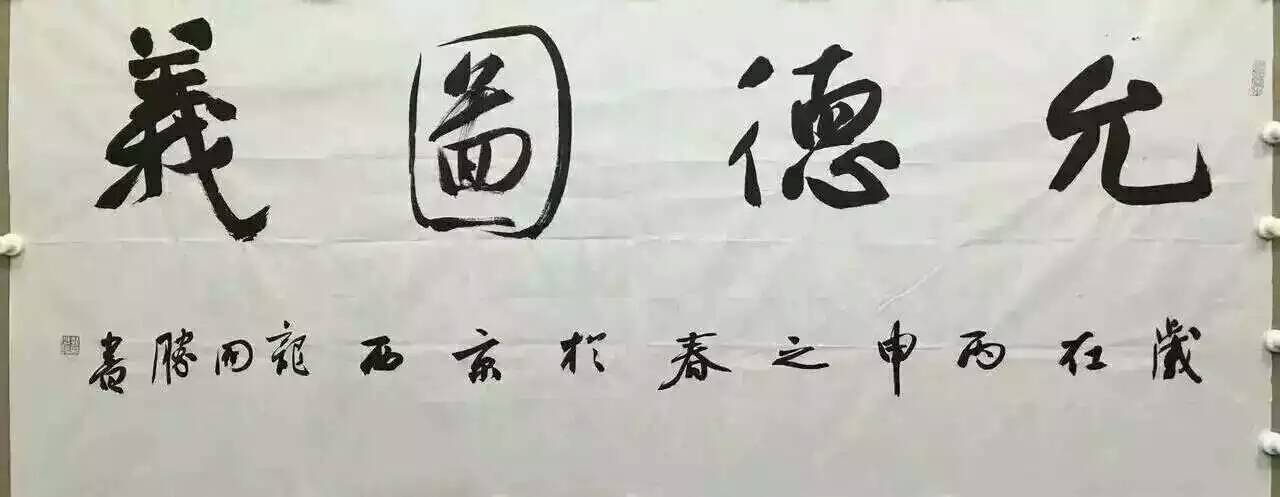 允德圖義
歲在丙申之春於京西勝書